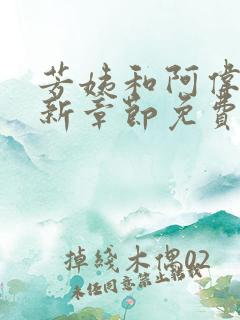 芳姨和阿偉
新章節免費
掉綫木偶02
未經同意禁止轉載